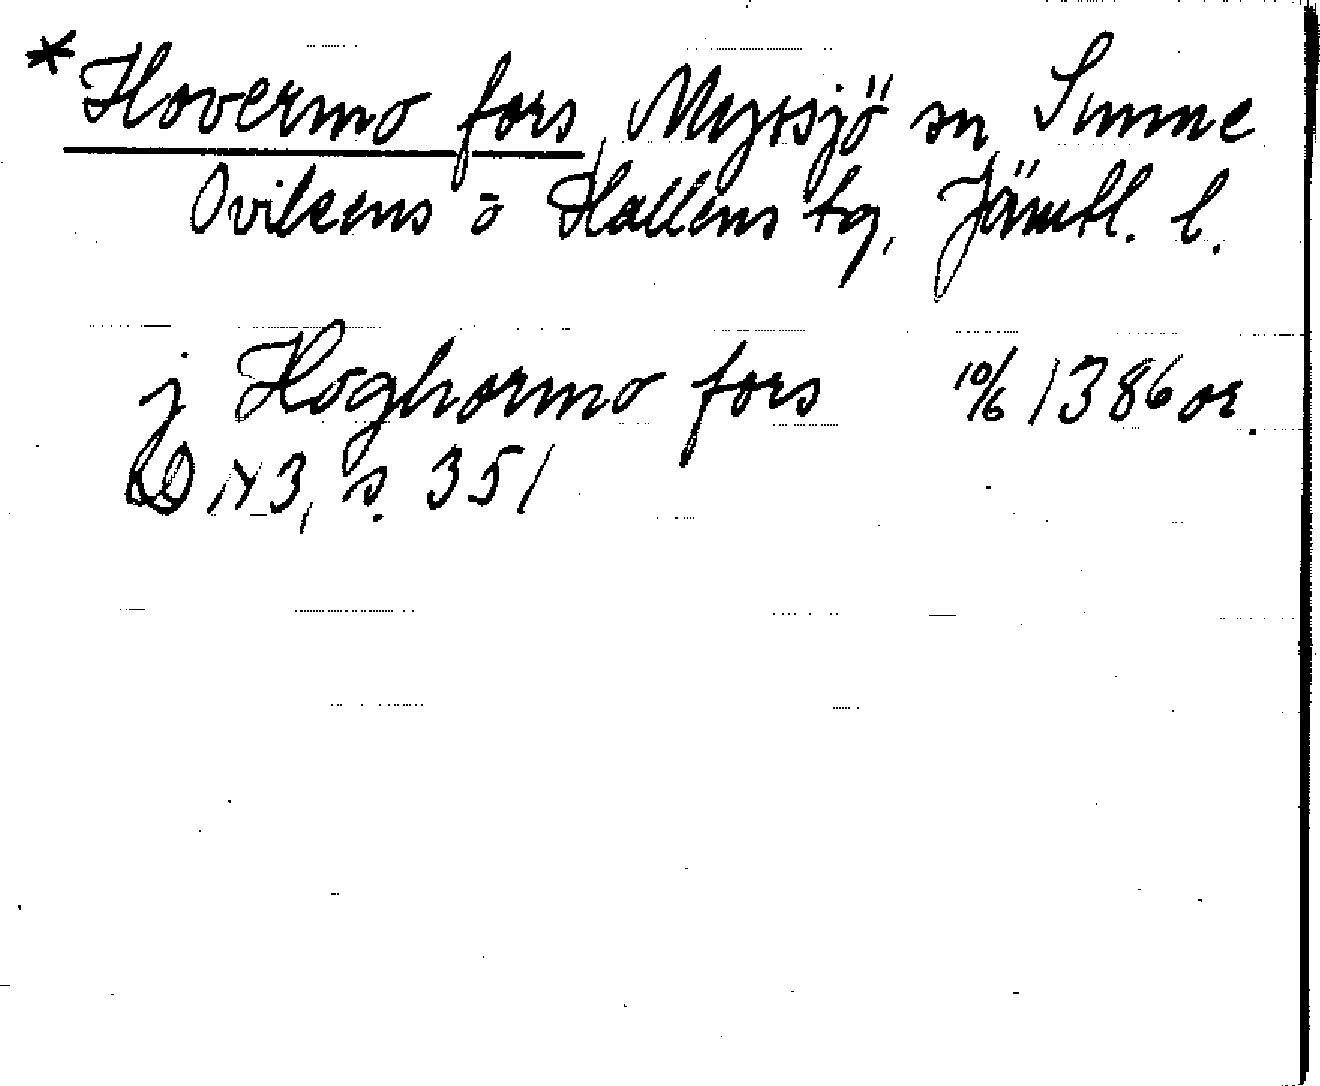 * Hovermo fors, Myssjö sn Sunne
Ovikens o Hallens tg, Jämtl. l.
j Höghormo fors 10/6 1386 or.
DN 3, s. 351